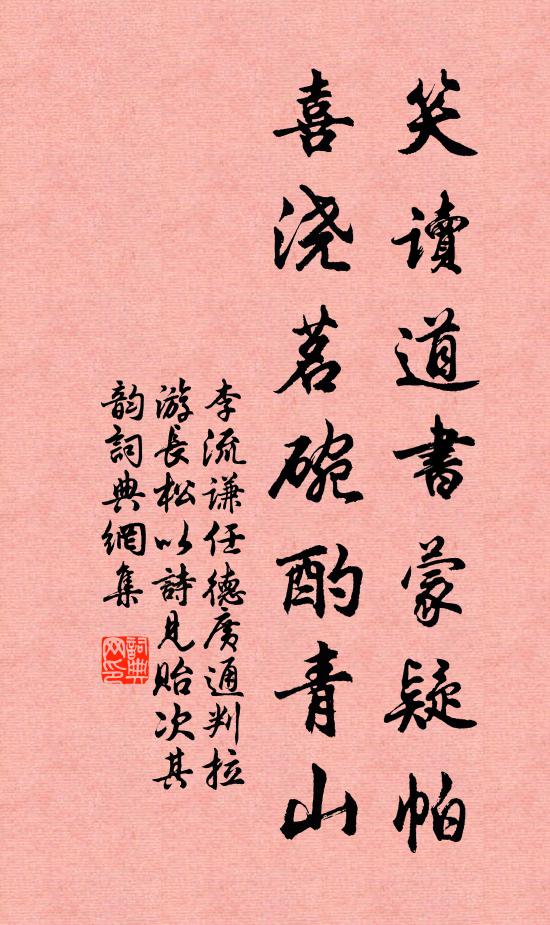 笑讀道書蒙疑帕
喜浇茗碗酌青山
李流谦任德廣通判拉
游長松以詩見貽次其
韵詞典網集
詞典
网印